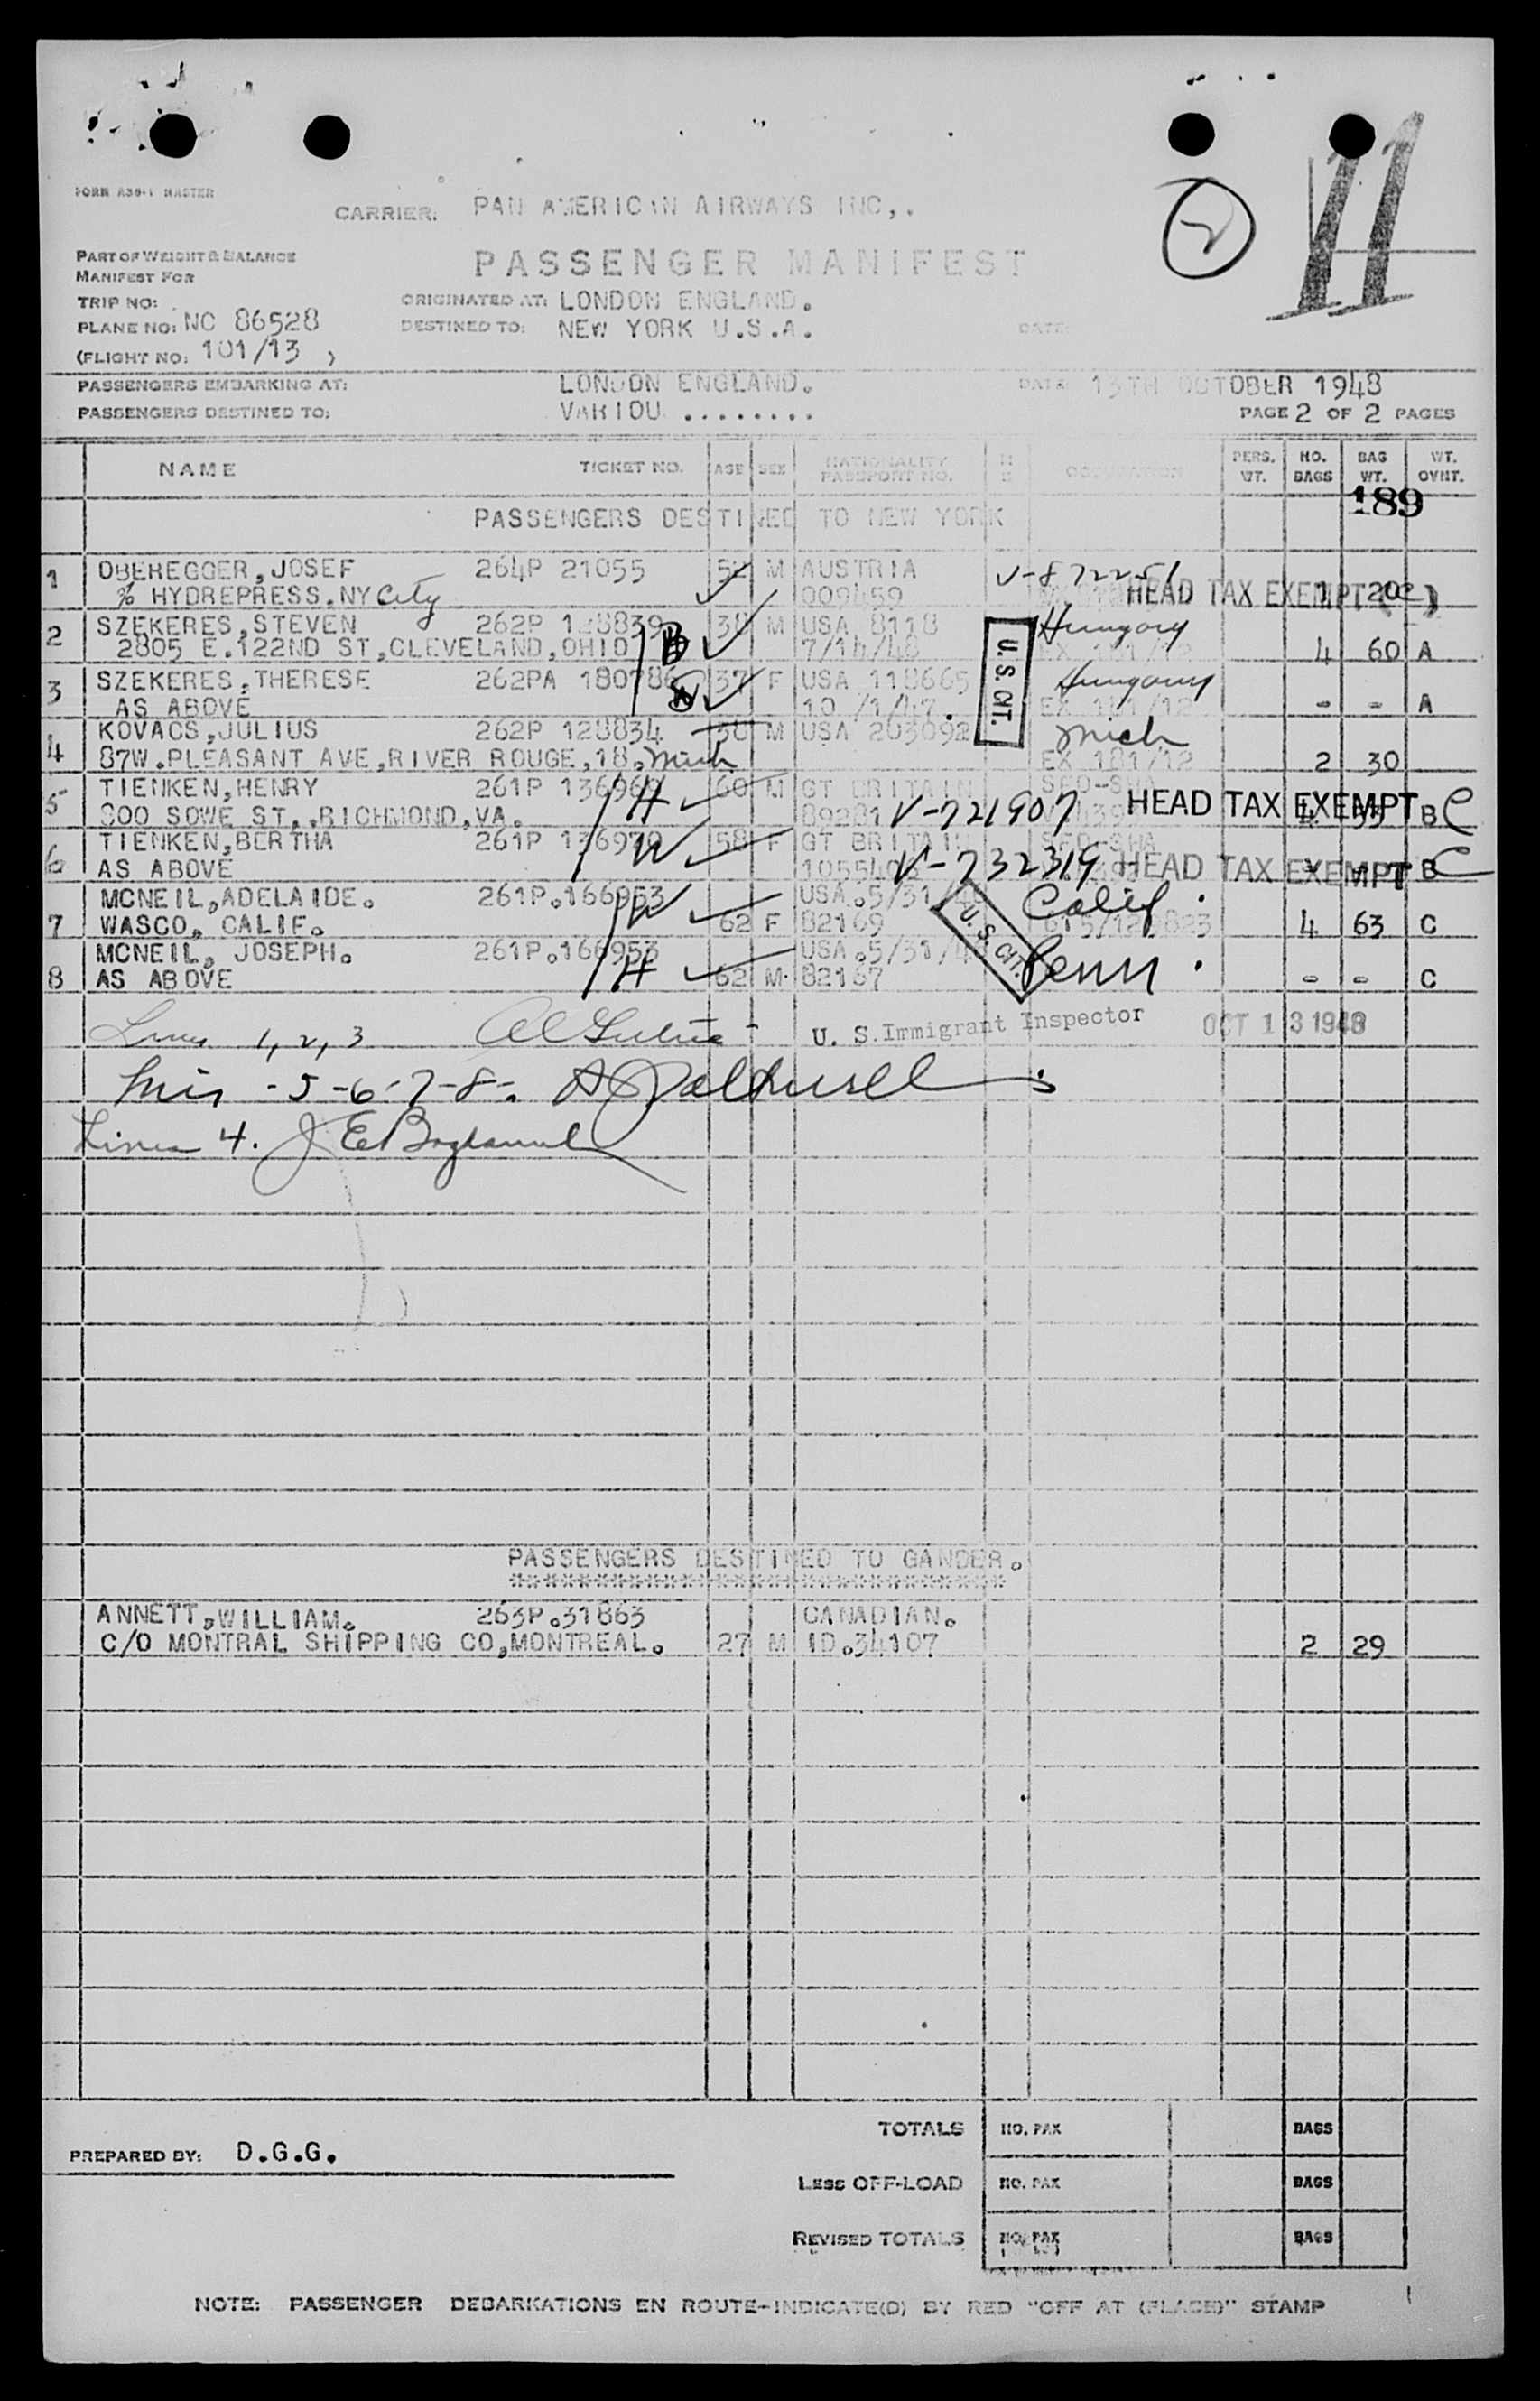 11
2
FORM A36-1 MASTER
CARRIER: PAN AMERICAN AIRWAYS INC,.
PART OF WEIGHT & BALANCE
MANIFEST FOR
PASSENGER MANIFEST
TRIP NO:
ORIGINATED AT: LONDON ENGLAND.
PLANE NO: NC 86528
DESTINED TO: NEW YORK U.S.A.
DATE:
(FLIGHT NO: 101/13 )
PASSENGERS EMBARKING AT: LONDON ENGLAND. DATE 13TH OCTOBER 1948
PASSENGERS DESTINED TO: VARIOU ........ PAGE 2 OF 2 PAGES
NAME TICKET NO. AGE SEX NATIONALITY PASSPORT NO. OCCUPATION PERS. WT. NO. BAGS BAG WT. WT. OVHT.
189
PASSENGERS DESTINED TO NEW YORK
1 OBEREGGER,JOSEF 264P 21055 M AUSTRIA V-872251
% HYDREPRESS.NY City 009459 HEAD TAX EXEMPT 1 20
2 SZEKERES,STEVEN 262P 128839 38 M USA 8118 Hungary
2805 E.122ND ST,CLEVELAND,OHIO B 7/14/48 EX 181/12 4 60 A
U.S. CIT.
3 SZEKERES,THERESE 262PA 180786 37 F USA 118665 Hungary
AS ABOVE 10/1/47. EX 181/12 - - A
4 KOVACS,JULIUS 262P 128834 M USA 203092 Mich
87W.PLEASANT AVE,RIVER ROUGE,18.Mich EX 181/12 2 30
5 TIENKEN,HENRY 261P 136969 H 60 M GT BRITAIN SFO-SHA
800 SOWE ST,.RICHMOND,VA. 89281 V-721907 HEAD TAX EXEMPT B C
6 TIENKEN,BERTHA 261P 136970 W 58 F GT BRITAIN SFO-SHA
AS ABOVE V-732319 HEAD TAX EXEMPT B C
MCNEIL,ADELAIDE. 261P.166953 W USA.5/31/48 Calif.
7 WASCO, CALIF. 62 F 82169 4 63 C
U.S. CIT.
MCNEIL, JOSEPH. 261P.166953 H USA.5/31/48 Penn.
8 AS ABOVE 62 M 82167 - - C
Lines 1,2,3 U. S. Immigrant Inspector OCT 13 1948
Lines -5-6-7-8-.
Lines 4.
PASSENGERS DESTINED TO GANDER.
ANNETT,WILLIAM. 263P.31863 CANADIAN.
C/O MONTRAL SHIPPING CO,MONTREAL. 27 M ID.34107 2 29
TOTALS NO. PAX BAGS
PREPARED BY: D.G.G.
LESS OFF-LOAD NO. PAX BAGS
REVISED TOTALS NO. PAX BAGS
NOTE: PASSENGER DEBARKATIONS EN ROUTE-INDICATE(D) BY RED "OFF AT (PLACE)" STAMP